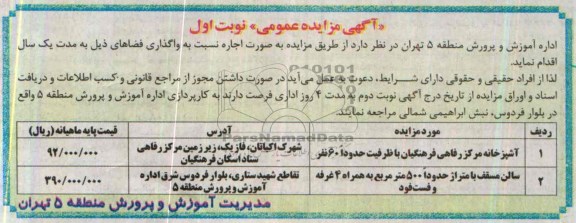 «آگهی مزایده عمومی» نوبت اول
اداره آموزش و پرورش منطقه ۵ تهران در نظر دارد از طریق مزایده به صورت اجاره نسبت به واگذاری فضاهای ذیل به مدت یک سال
اقدام نماید.
لذا از افراد حقیقی و حقوقی دارای شــرایط، دعوت به عمل می‌آید در صورت داشتن مجوز از مراجع قانونی و کسب اطلاعات و دریافت
اسناد و اوراق مزایده از تاریخ درج آگهی نوبت دوم به مدت ۴ روز اداری فرصت دارند به کارپردازی اداره آموزش و پرورش منطقه ۵ واقع
در بلوار فردوس، نبش ابراهیمی شمالی مراجعه نمایند.
ردیف مورد مزایده آدرس قیمت پایه ماهیانه (ریال)
۱ آشپزخانه مرکز رفاهی فرهنگیان با ظرفیت حدوداً ۶۰ نفر شهرک اکباتان، فاز یک، زیرزمین مرکز رفاهی ستاد اسکان فرهنگیان ۹۲/۰۰۰/۰۰۰
۲ سالن مسقف با متراژ حدوداً ۵۰۰ متر مربع به همراه ۴ غرفه و فست فود تقاطع شهید ستاری، بلوار فردوس شرق اداره آموزش و پرورش منطقه ۵ ۳۹۰/۰۰۰/۰۰۰
مدیریت آموزش و پرورش منطقه ۵ تهران
ParsNamadData